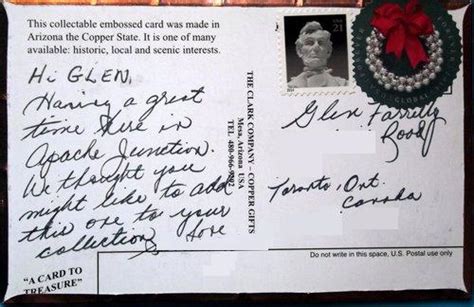 This collectable embossed card was made in
Arizona the Copper State. It is one of many
available: historic, local and scenic interests.
Hi GLEN,
Having a great
time here in
Apache Junction.
We thought you
might like to add
this one to your
collection Love
"A CARD TO
TREASURE"
THE CLARK COMPANY – COPPER GIFTS
Mesa, Arizona USA
TEL 480-966-9982
USA 21
GLOBAL
Glen Farrelly
Toronto, Ont.
Canada
Do not write in this space, U.S. Postal use only